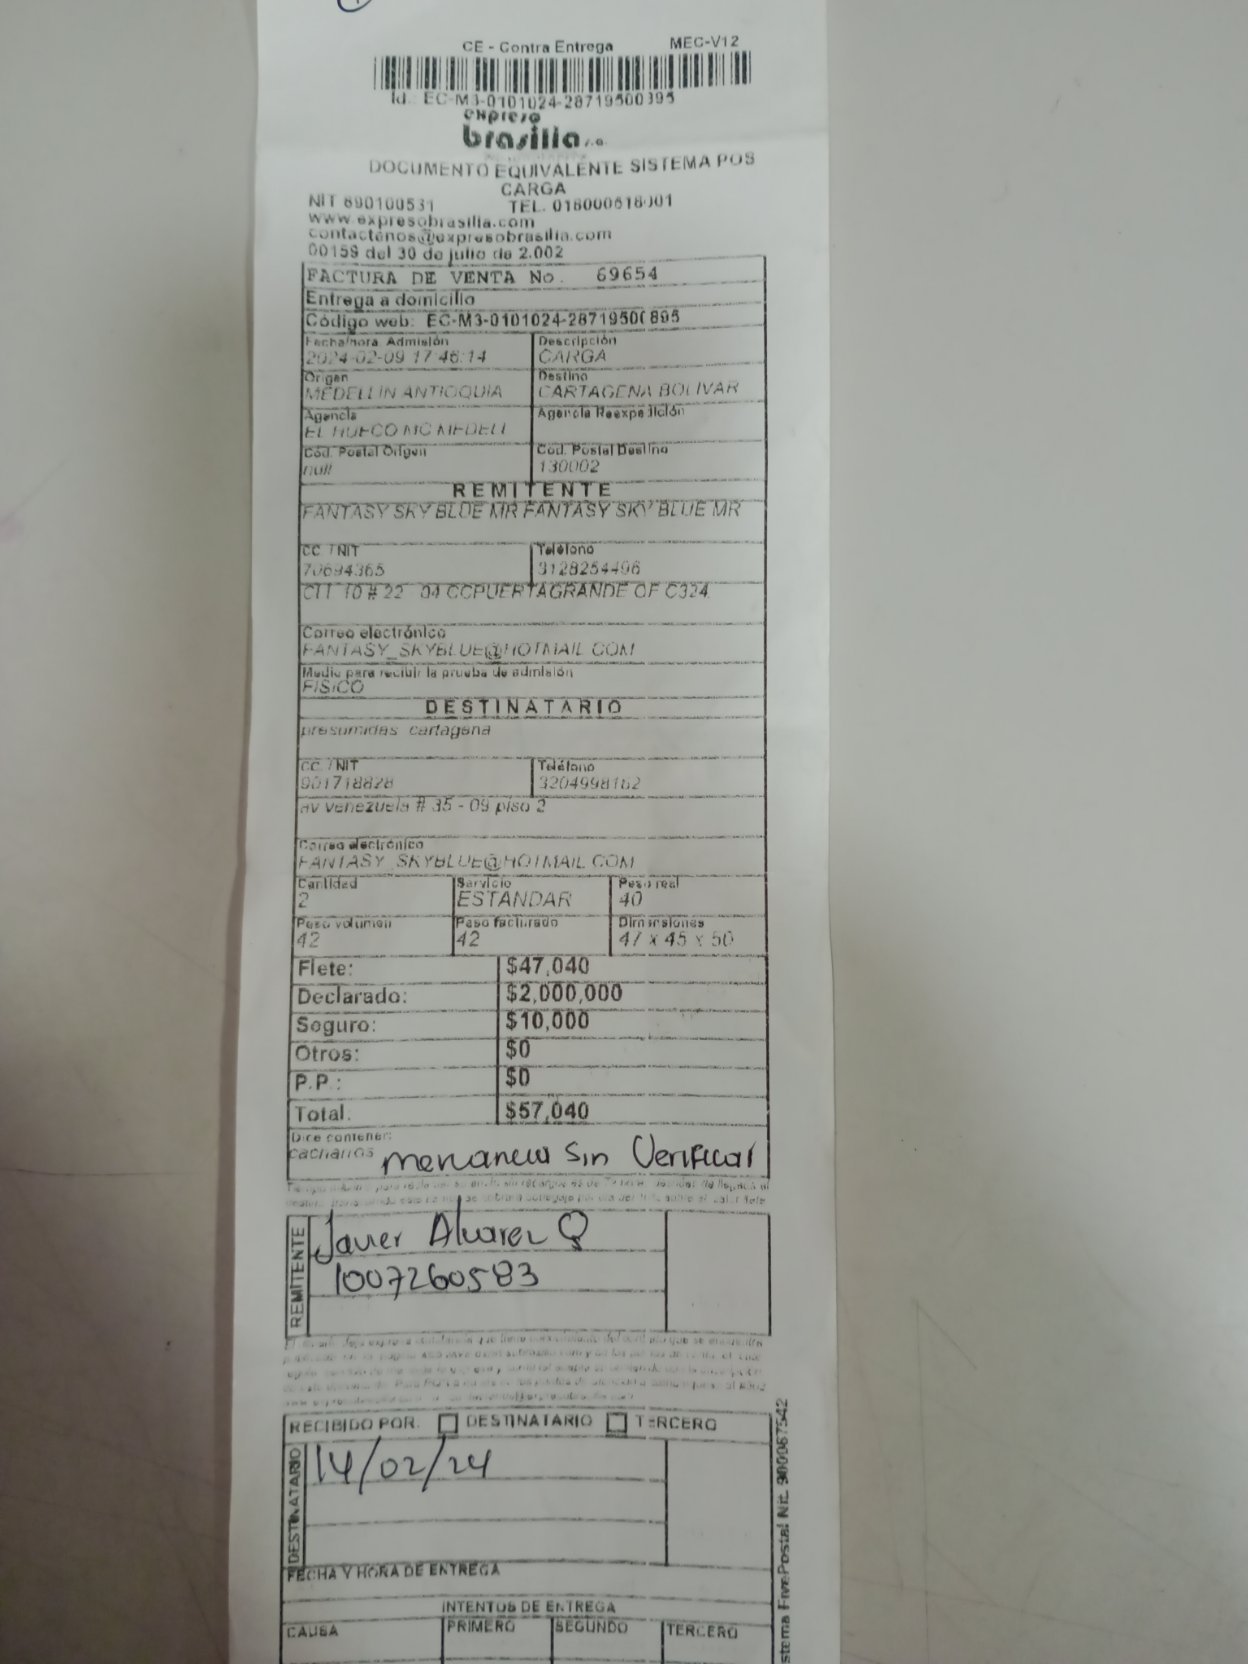 CE - Contra Entrega MEC-V12
Id.: EC-M3-0101024-28719500895
expreso
brasilia s.a
DOCUMENTO EQUIVALENTE SISTEMA POS
CARGA
NIT 890100531 TEL. 018000518001
www.expresobrasilia.com
contactenos@expresobrasilia.com
00159 del 30 de julio de 2.002
FACTURA DE VENTA No. 69654
Entrega a domicilio
Código web: EC-M3-0101024-28719500895
Fecha/hora Admisión Descripción
2024-02-09 17:46:14 CARGA
Origen Destino
MEDELLIN ANTIOQUIA CARTAGENA BOLIVAR
Agencia Agencia Reexpedición
EL HUECO MC MEDELL
Cod. Postal Origen Cod. Postal Destino
null 130002
REMITENTE
FANTASY SKY BLUE MR FANTASY SKY BLUE MR
CC. / NIT Teléfono
70694365 3128254496
CLL 10 # 22 04 CCPUERTAGRANDE OF C324
Correo electrónico
FANTASY_SKYBLUE@HOTMAIL.COM
Medio para recibir la prueba de admisión
FISICO
DESTINATARIO
presumidas cartagena
CC. / NIT Teléfono
901718828 3204998162
av venezuela # 35 - 09 piso 2
Correo electrónico
FANTASY_SKYBLUE@HOTMAIL.COM
Cantidad Servicio Peso real
2 ESTANDAR 40
Peso volumen Peso facturado Dimensiones
42 42 47 x 45 x 50
Flete: $47,040
Declarado: $2,000,000
Seguro: $10,000
Otros: $0
P.P.: $0
Total: $57,040
Dice contener:
cacharros mercancia Sin Verificar
REMITENTE
Javier Alvarez Q
1007260583
RECIBIDO POR: DESTINATARIO TERCERO
DESTINATARIO
14/02/24
FECHA Y HORA DE ENTREGA
INTENTOS DE ENTREGA
CAUSA PRIMERO SEGUNDO TERCERO
stema FivePostal Nit. 900087542